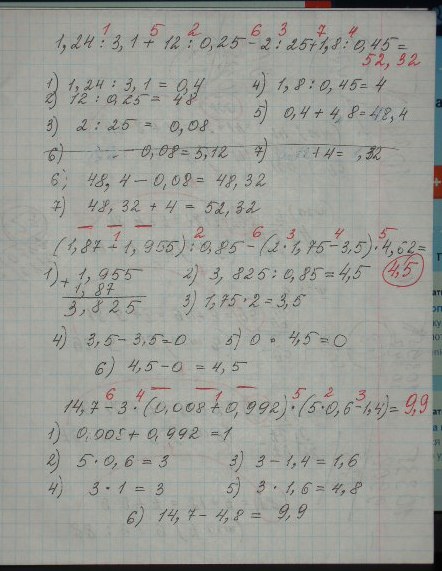 1 5 2 6 3 7 4
1,24 : 3,1 + 12 : 0,25 - 2 : 25 + 1,8 : 0,45 =
52,32
1) 1,24 : 3,1 = 0,4 4) 1,8 : 0,45 = 4
2) 12 : 0,25 = 48
5) 0,4 + 4,8 = 48,4
3) 2 : 25 = 0,08
6) - 0,08 = 5,12 7) + 4 = ,32
6) 48,4 - 0,08 = 48,32
7) 48,32 + 4 = 52,32
1 2 6 3 4 5
(1,87 + 1,955) : 0,85 - (2 · 1,75 - 3,5) · 4,62 =
4,5
1) + 1,955 2) 3,825 : 0,85 = 4,5
1,87
3,825 3) 1,75 · 2 = 3,5
4) 3,5 - 3,5 = 0 5) 0 · 4,5 = 0
6) 4,5 - 0 = 4,5
6 4 1 5 2 3
14,7 - 3 · (0,008 + 0,992) · (5 · 0,6 - 1,4) = 9,9
1) 0,008 + 0,992 = 1
2) 5 · 0,6 = 3 3) 3 - 1,4 = 1,6
4) 3 · 1 = 3 5) 3 · 1,6 = 4,8
6) 14,7 - 4,8 = 9,9